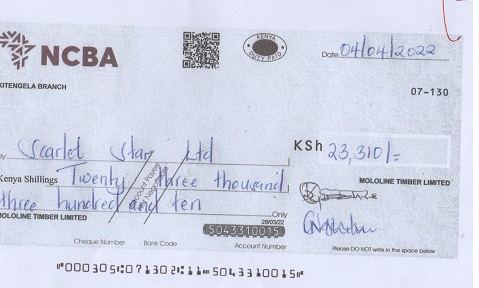 NCBA
KENYA
DUTY PAID
Date 04/04/2022
KITENGELA BRANCH
07-130
Scarlet Star Ltd
KSh 23,310/=
Kenya Shillings Twenty three thousand
MOLOLINE TIMBER LIMITED
three hundred and ten
MOLOLINE TIMBER LIMITED
Only
28/03/22
5043310015
Cheque Number Bank Code Account Number
Please DO NOT write in the space below
⑈000305⑆07130211⑈5043310015⑈